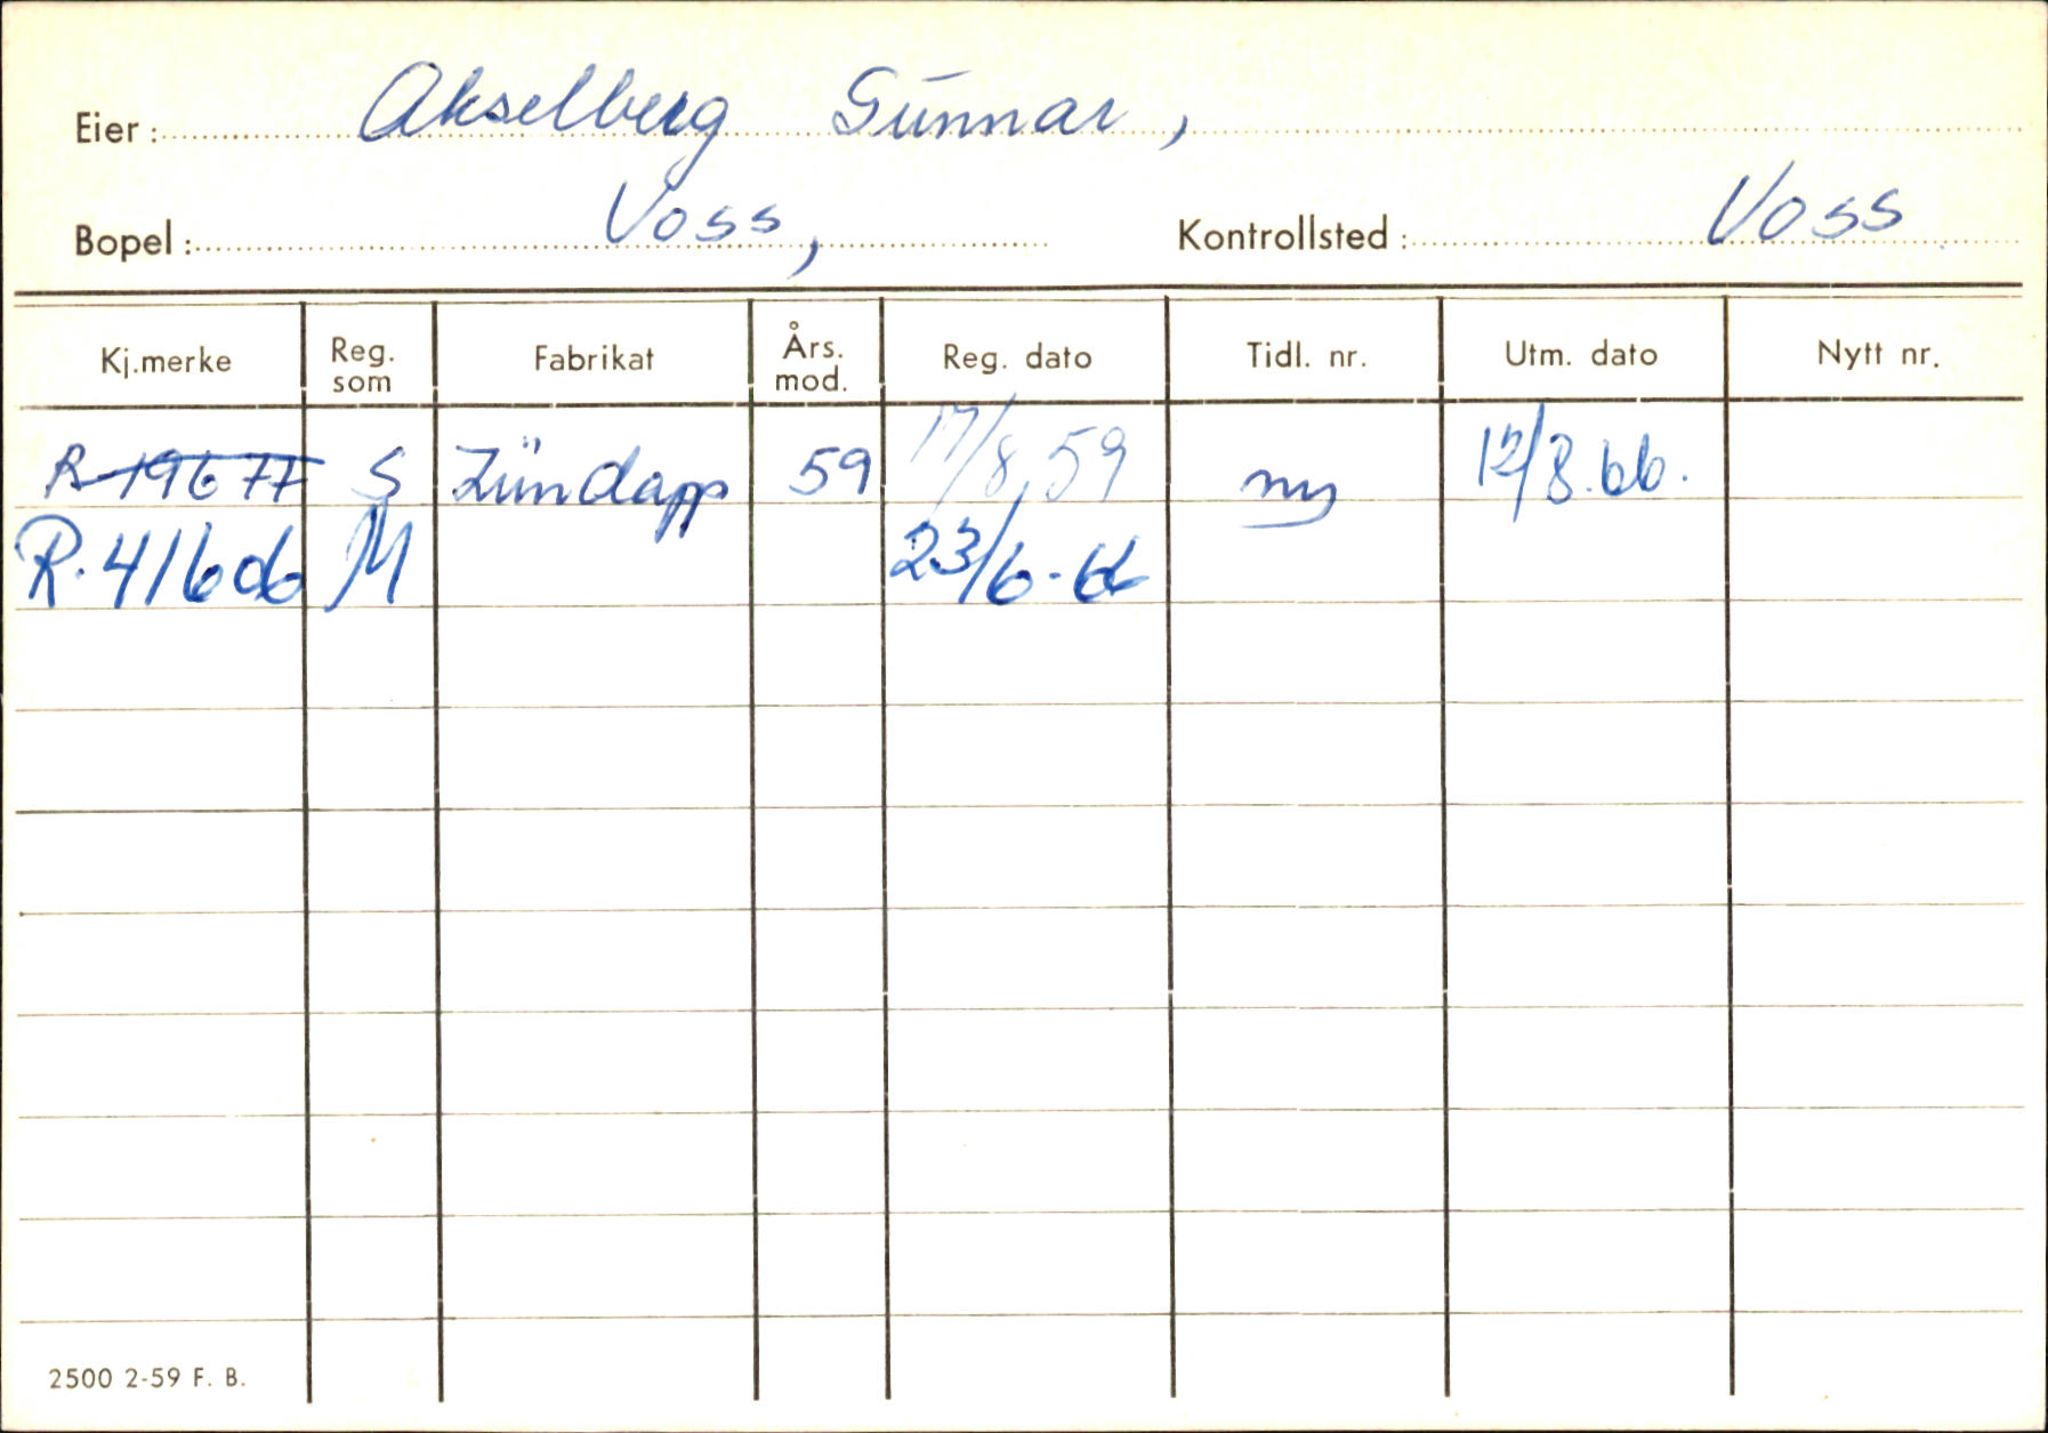 Eier: Akselberg Gunnar,
Bopel: Voss, Kontrollsted: Voss
Kj.merke Reg. som Fabrikat Års. mod. Reg. dato Tidl. nr. Utm. dato Nytt nr.
R-19677 S Zündapp 59 17/8,59 ny 12/8.66.
R.41606 M 23/6-66
2500 2-59 F. B.